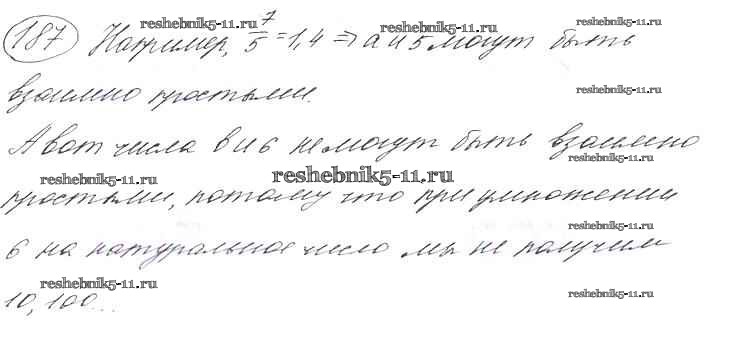 reshebnik5-11.ru reshebnik5-11.ru reshebnik5-11.ru
187 Например, 7/5 = 1,4 ⇒ а и 5 могут быть
reshebnik5-11.ru
взаимно простыми.
А вот числа в и 6 не могут быть взаимно
reshebnik5-11.ru
reshebnik5-11.ru reshebnik5-11.ru
простыми, потому что при умножении
reshebnik5-11.ru
6 на натуральное число мы не получим
reshebnik5-11.ru reshebnik5-11.ru
10, 100...